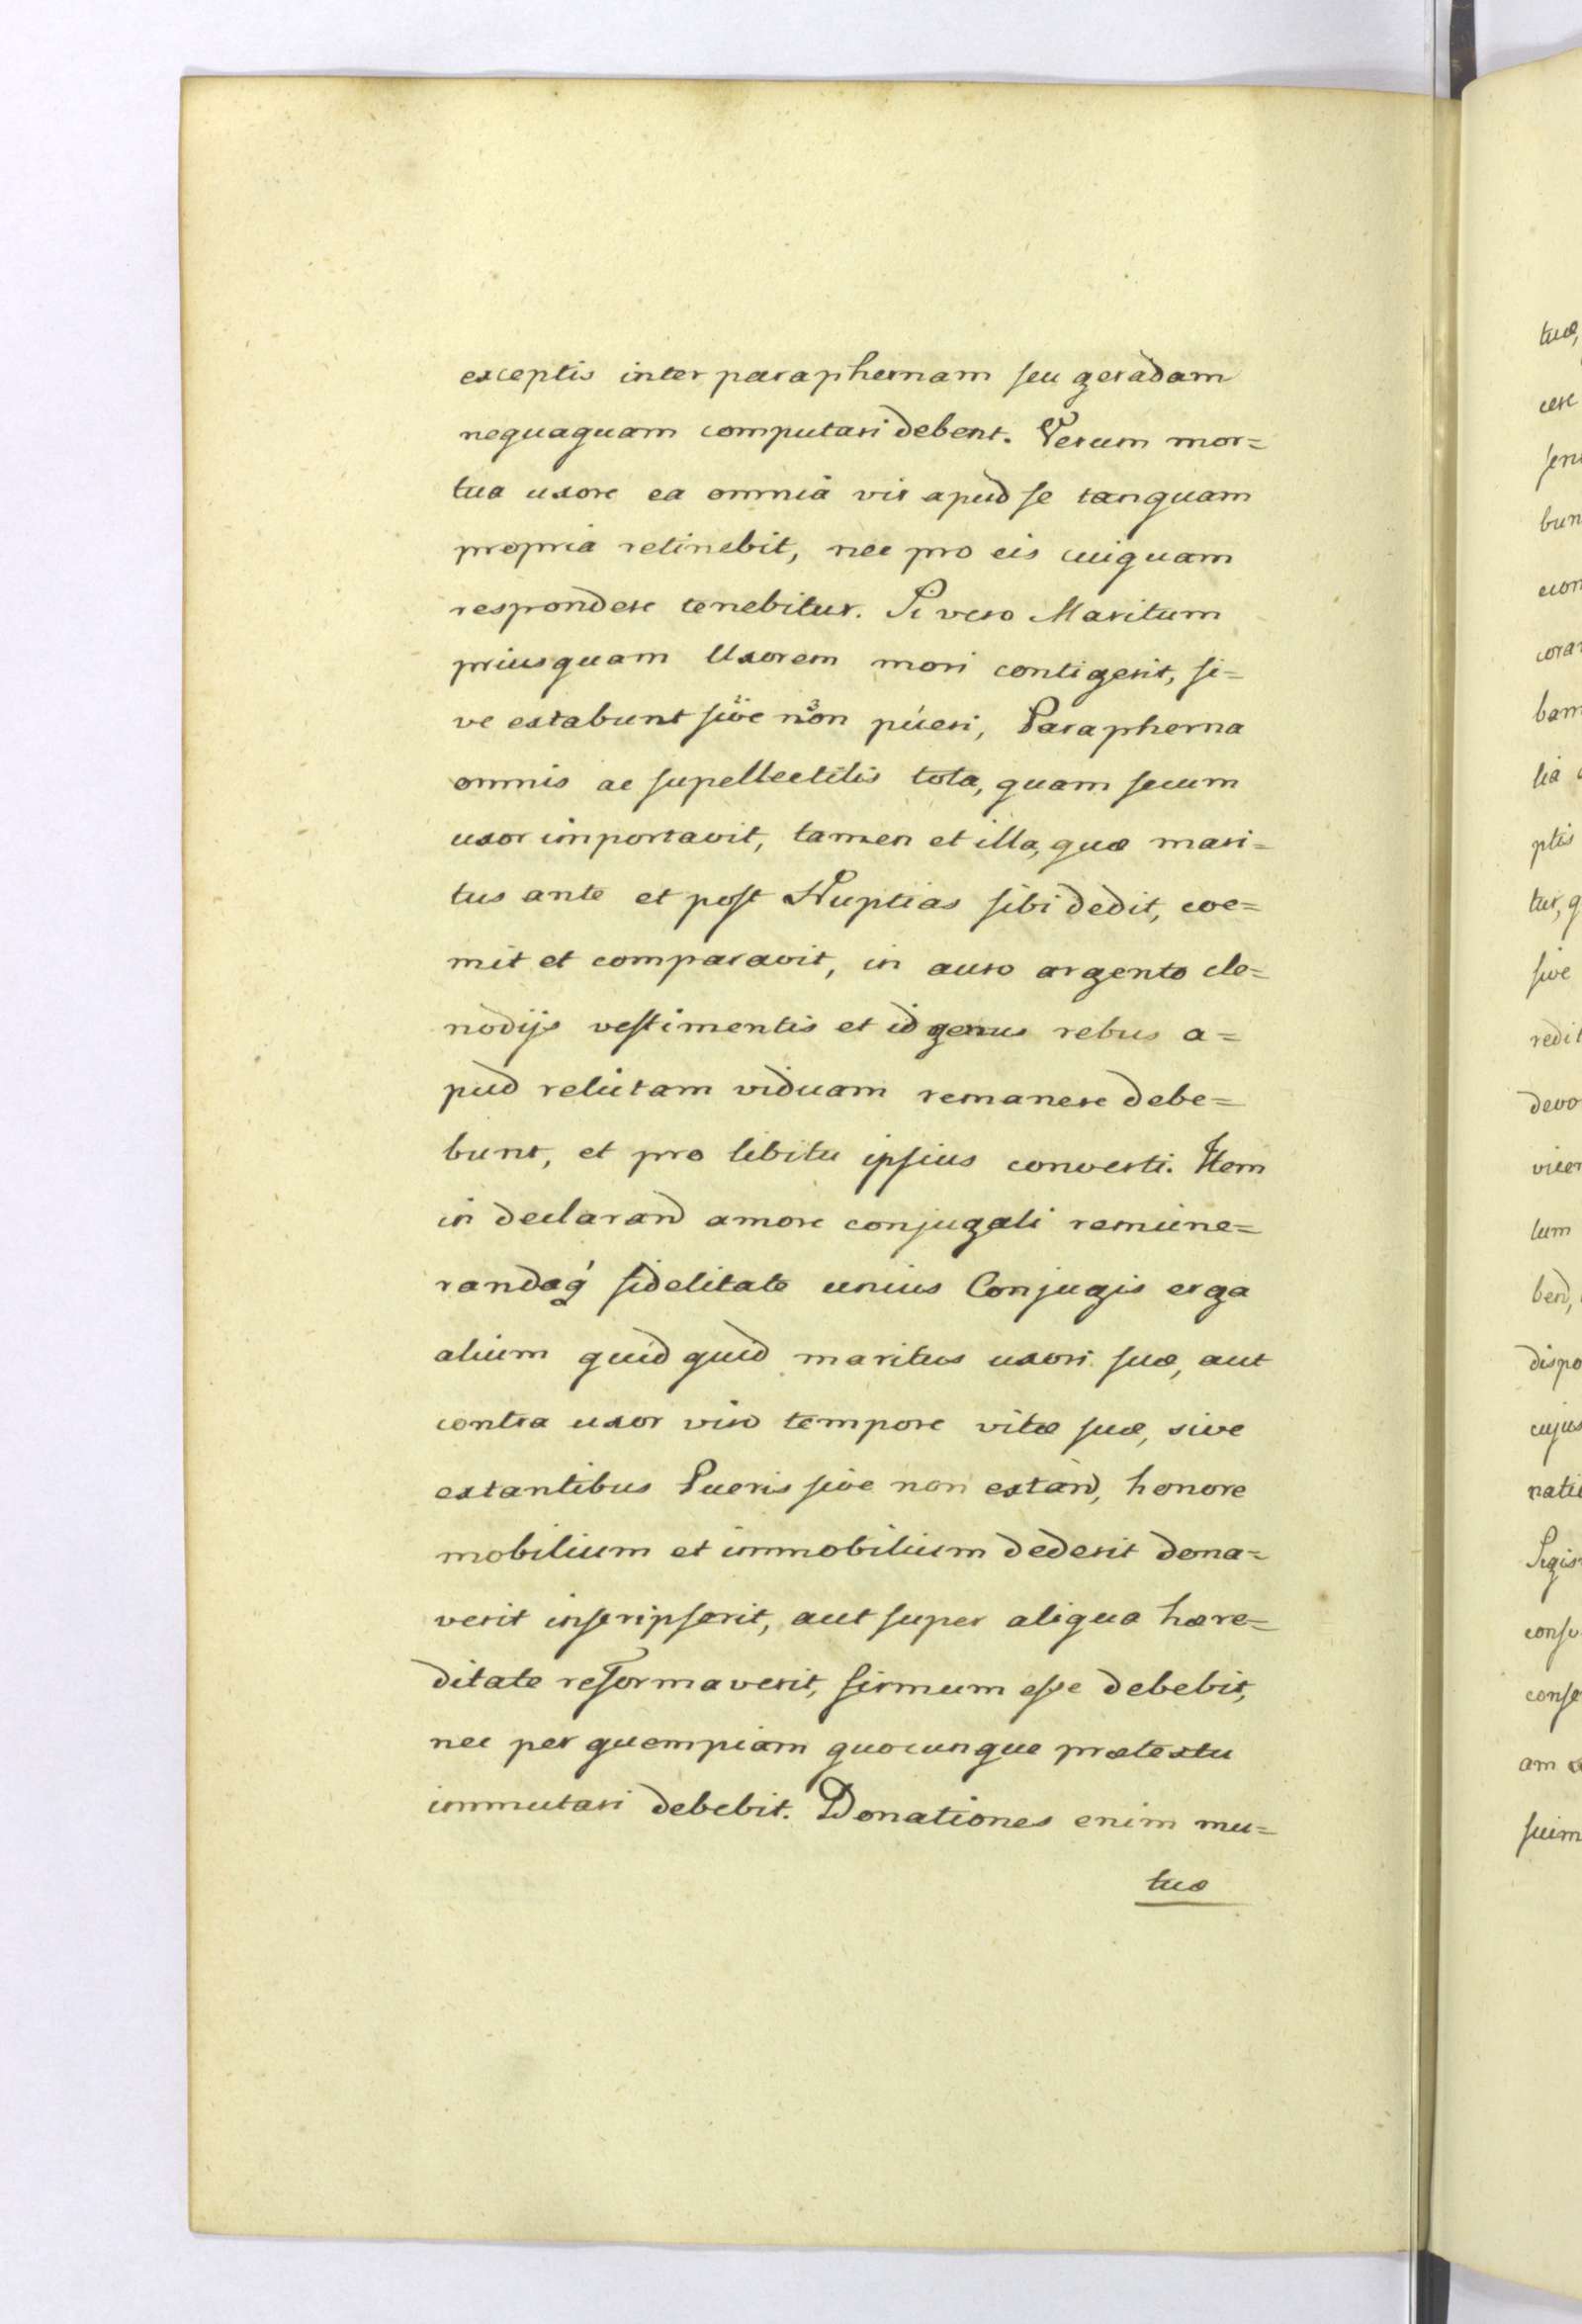 exceptis inter paraphernam seu geradam
nequaquam computari debent. Verum mor=
tua uxore ea omnia vir apud se tanquam
propria retinebit, nec pro eis cuiquam
respondere tenebitur. Si vero Maritum
priusquam Uxorem mori contigerit, si=
ve extabunt sive non pueri, Parapherna
omnis ac supellectilis tota, quam secum
uxor importavit, tamen et illa, quæ mari=
tus ante et post Nuptias sibi dedit, coe=
mit et comparavit, in auro argento cle=
nodijs vestimentis et id genus rebus a=
pud relictam viduam remanere debe=
bunt, et pro libitu ipsius converti. Item
in declarand amore conjugali remune=
randaq́ fidelitate unius Conjugis erga
alium quidquid maritus uxori suæ, aut
contra uxor viro tempore vitæ suæ, sive
extantibus Pueris sive non extand, honore
mobilium et immobilium dederit dona=
verit inscripserit, aut super aliqua hære=
ditate reformaverit, firmum esse debebit,
nec per quempiam quocunque prætextu
immutari debebit. Donationes enim mu=
tuæ
tuæ,
bun
bam
lia
ptis
tur, q
sive
redit
devo
lum
bend,
dispo
cujus
nati
conse
am